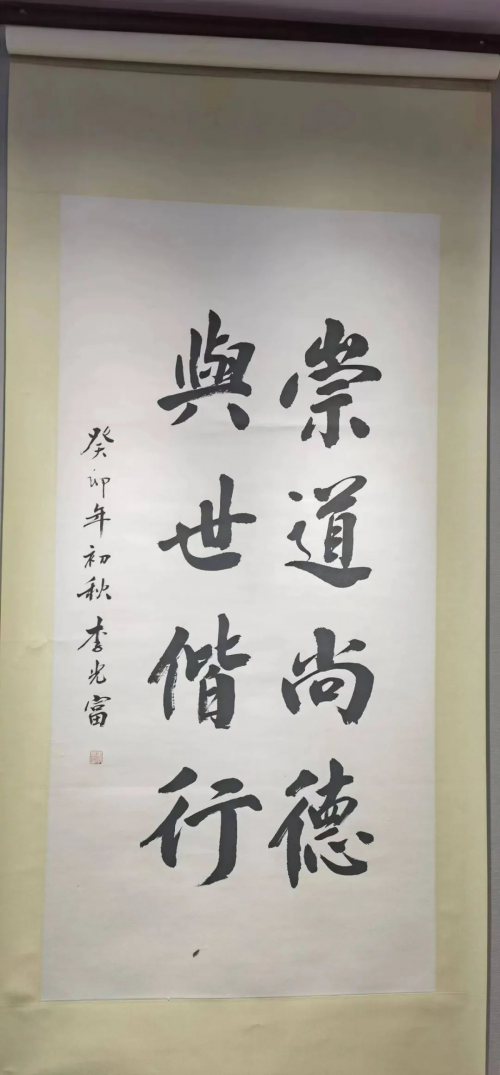 崇道尚德
與世偕行
癸卯年初秋 李光富